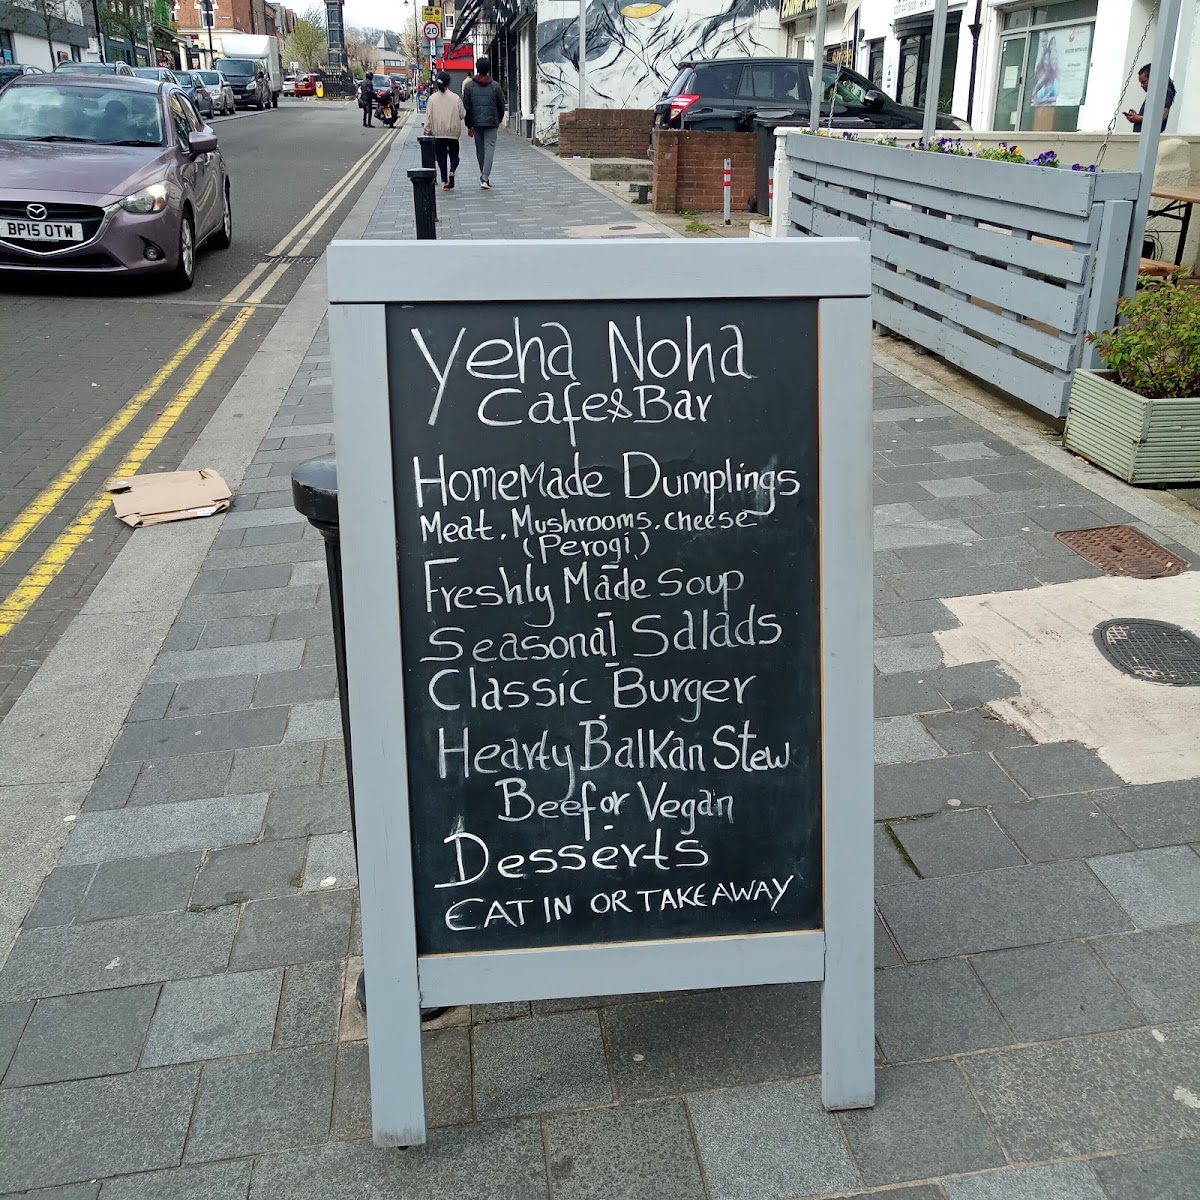 Yeha Noha
Cafe & Bar
HomeMade Dumplings
Meat, Mushrooms, cheese
(Perogi)
Freshly Made Soup
Seasonal Salads
Classic Burger
Hearty Balkan Stew
Beef or Vegan
Desserts
EAT IN OR TAKEAWAY
BP15 OTW
20